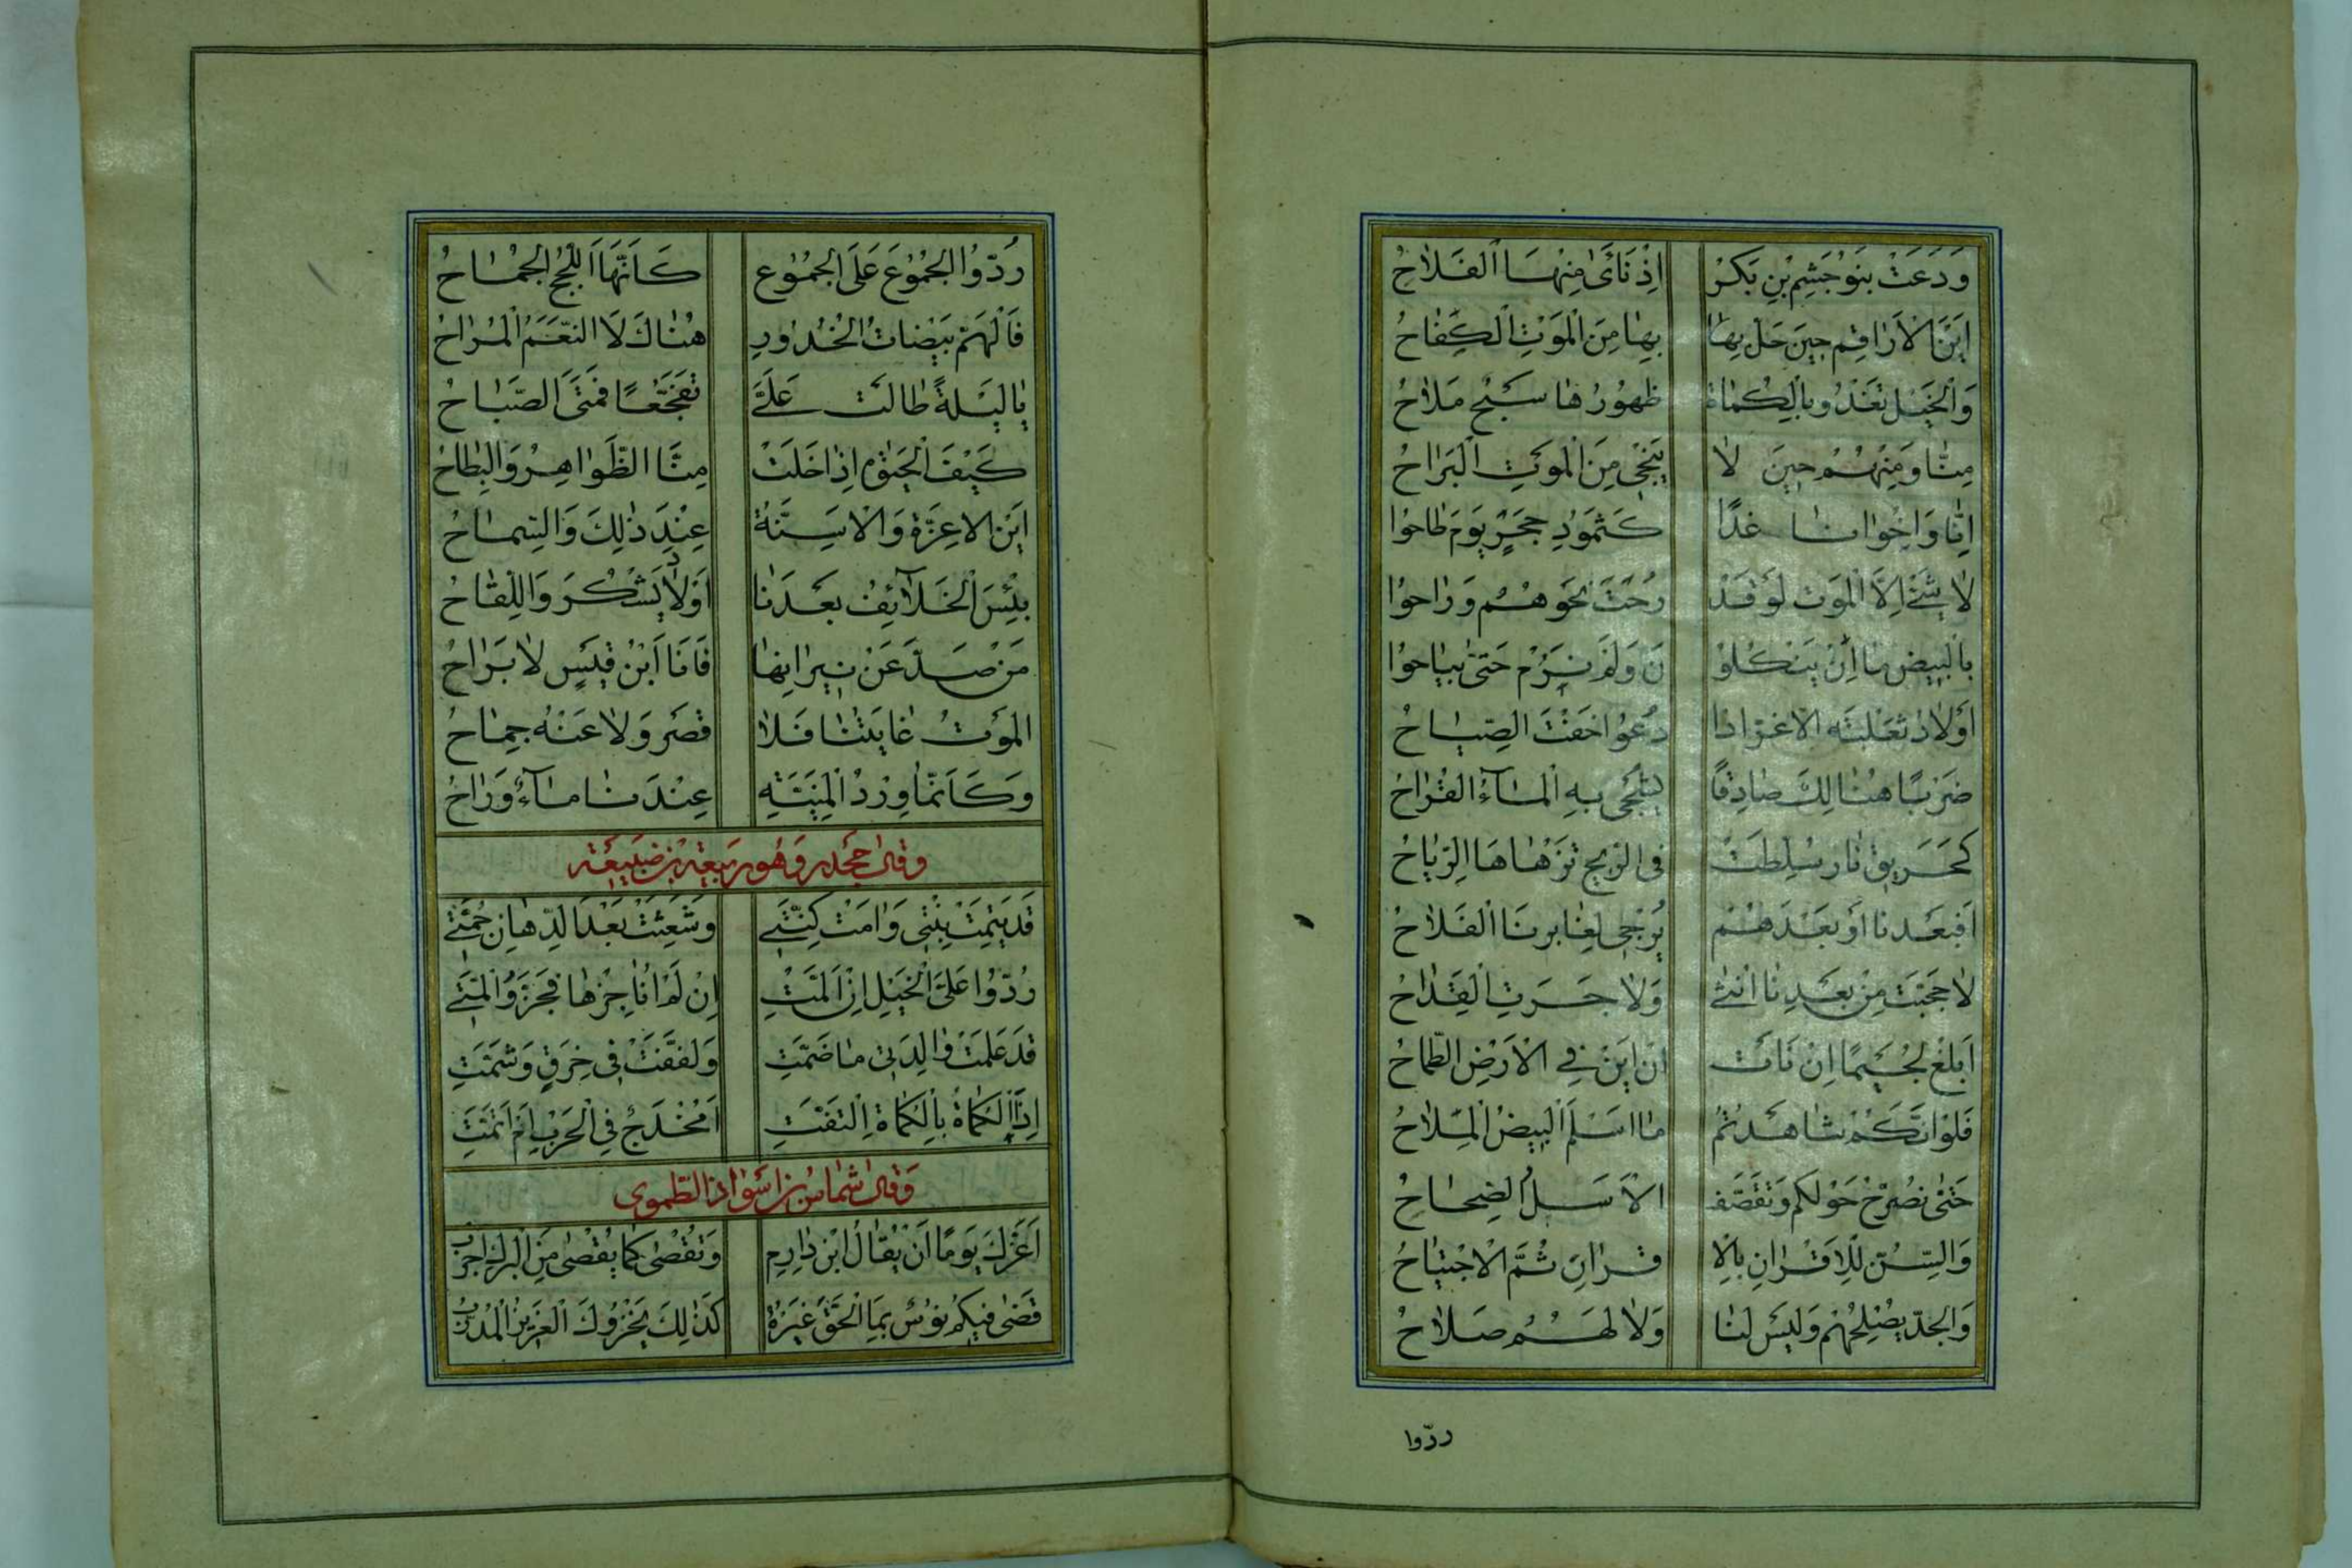 وَدَعَتْ بَنُو جُشَمِ بْنِ بَكْرٍ اِذْ نَائَ مِنْهَا الْفَلَاحُ
اَيْنَ الْاَرَاقِمِ حِينَ حَلَّ بِهَا بِهَا مِنَ الْمَوْتِ الْكِفَاحُ
وَالْخَيْلُ تَغْدُو بِالْكُمَاةِ ظُهُورُهَا سَبْحٌ مَلَاحُ
مِنَّا وَمِنْهُمْ حِينَ لَا يُنْجِى مِنَ الْمَوْتِ الْبَرَاحُ
اِنَّا وَاِخْوَانَنَا غَدًا كَثَمُودِ حِجْرٍ يَوْمَ طَاحُوا
لَا شَئَ اِلَّا الْمَوْتَ لَوْ قَدْ رُحْتَ نَحْوَهُمْ وَرَاحُوا
بِالْبِيضِ مَا اِنْ يَنْكُلُو نَ وَلَمْ نَرِمْ حَتَّى يُبَاحُوا
اَوْلَادُ ثَعْلَبَةَ الْاَغَرِّ اِذَا دُعُوا خَفَّتَ الصِّيَاحُ
ضَرْبًا هُنَالِكَ صَادِقًا الْمَاءُ الْقَرَاحُ
كَحَرِيقِ نَارٍ سُلِّطَتْ فى الرِّيحِ تَزْهَاهَا الرِّيَاحُ
اَفَبَعْدَنَا اَوْ بَعْدَهُمْ يُرْجَى لِغَابِرِنَا الْفَلَاحُ
لَا حَجَبَتْ مِنْ بَعْدِنَا اُنْثَى وَلَا جَرَتِ الْقِدَاحُ
اَبْلِغْ لُجَيْمًا اِنْ نَاَتْ اَنْ اَيْنَ فِى الْاَرْضِ الطَّمَاحُ
فَلَوْ اَنَّكُمْ شَاهَدْتُمُ مَا اَسْلَمَ الْبِيضُ الْمِلَاحُ
حَتَّى نُصَرَّحَ حَوْلَكُمْ وَتَقَصَّفَ الْاَسَلُ الصِّحَاحُ
وَالسِّنُّ لِلْاَقْرَانِ بِالْا قْرَانِ ثُمَّ الْاِجْتِيَاحُ
وَالْجِدُّ يُصْلِحُهُمْ وَلَيْسَ لَنَا وَلَا لَهُمُ صَلَاحُ
ردّوا
رُدُّوا الْجُمُوعَ عَلَى الْجُمُوعِ كَاَنَّهَا اللُّجُّ الْجِمَاحُ
فَالْهَمُّ بَيْضَاتُ الْخُدُورِ هُنَاكَ لَا النَّعَمُ الْمُرَاحُ
يَا لَيْلَةً طَالَتْ عَلَىَّ تَفَجُّعًا فَمَتَى الصَّبَاحُ
كَيْفَ الْحَيٰوةُ اِذَا خَلَتْ مِنَّا الظَّوَاهِرُ وَالْبِطَاحُ
اَيْنَ الْاَعِزَّةُ وَالْاَسِنَّةُ عِنْدَ ذٰلِكَ وَالسَّمَاحُ
بِئْسَ الْخَلَآئِفُ بَعْدَنَا اَوْلَادُ يَشْكُرَ وَاللِّقَاحُ
مَنْ صَدَّ عَنْ نِيرَانِهَا فَاَنَا ابْنُ قَيْسٍ لَا بَرَاحُ
الْمَوْتُ غَايَتُنَا فَلَا قَصْرٌ وَلَا عَنْهُ جِمَاحُ
وَكَاَنَّمَا وِرْدُ الْمَنِيَّةِ عِنْدَنَا مَآءٌ وَرَاحُ
وقال جحدر وهو ربيعة بن ضبيعة
قَدْ يَتِمَتْ بِنْتِى وَاٰمَتْ كَنَّتِى وَشَعِثَتْ بَعْدَ الدِّهَانِ جُمَّتِى
رُدُّوا عَلَىَّ الْخَيْلَ اِنْ اَلَمَّتِ اِنْ لَمْ اُنَاجِزْهَا فَجُزُّوا لِمَّتِى
قَدْ عَلِمَتْ وَالِدَتِى مَا ضَمَّتِ وَلَفَّفَتْ فِى خِرَقٍ وَشَمَّتِ
اِذَا الْكُمَاةُ بِالْكُمَاةِ الْتَفَّتِ اَمُخْدَجٌ فِى الْحَرْبِ اَمْ اَتَمَّتِ
وقال شماس بن اسود الطهوى
اَغَرَّكَ يَوْمًا اَنْ يُقَالَ ابْنُ دَارِمٍ وَتُقْصٰى كَمَا يُقْصٰى مِنَ الْبَرْكِ اَجْرَبُ
قَضٰى فِيكُمُ بِمَا الْحَقُّ غَيْرُهُ كَذٰلِكَ يَخْزُوكَ الْعَزِيزُ الْمُدَرَّبُ